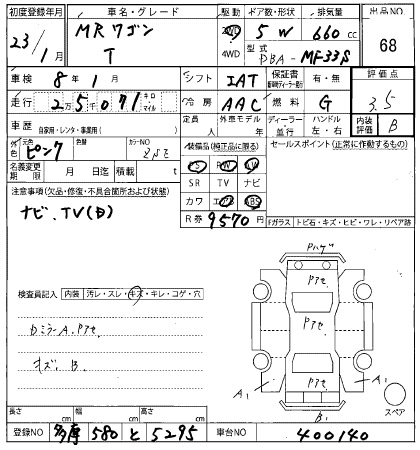 初度登録年月 車名・グレード 駆動 ドア数・形状 排気量 出品NO
23/1月 MRワゴン T 2WD 4WD 5 W 660 cc 68
型式 DBA-MF33S
車検 8年1月 シフト IAT 保証書 (新車時ディーラー発行) 有・無 評価点
走行 25071 キロ マイル 冷房 AAC 燃料 G 3.5
車歴 自家用・レンタ・事業用( ) 定員 人 外車モデル 年 ディーラー・並行 ハンドル 左・右 内装評価 B
外色 元色 ピンク 色替 カラーNO ZNE
名義変更期限 月 日迄 積載 t
装備品(純正品に限る) セールスポイント(正常に作動するもの)
PS PW AW
SR TV ナビ
カワ エアB ABS
R券 9570円
注意事項(欠品・修復・不具合箇所および状態)
ナビ、TV(D)
Fガラス トビ石・キズ・ヒビ・ワレ・リペア跡
検査員記入 内装 汚レ・スレ・キズ・キレ・コゲ・穴
カミラーA、Pアセ
キズ、B
Pハゲ
Pアセ
Pアセ
Pアセ
A1 A1
B1
スペア
長さ cm 幅 cm 高さ cm
登録NO 多摩 580 と 5295 車台NO 400140